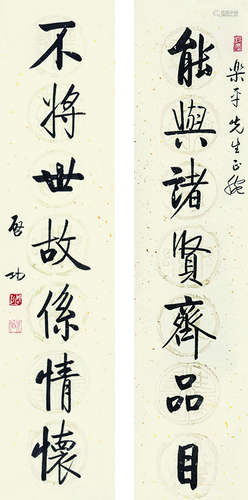 能與諸賢齊品目
樂平先生正腕
不將世故係情懷
啟功